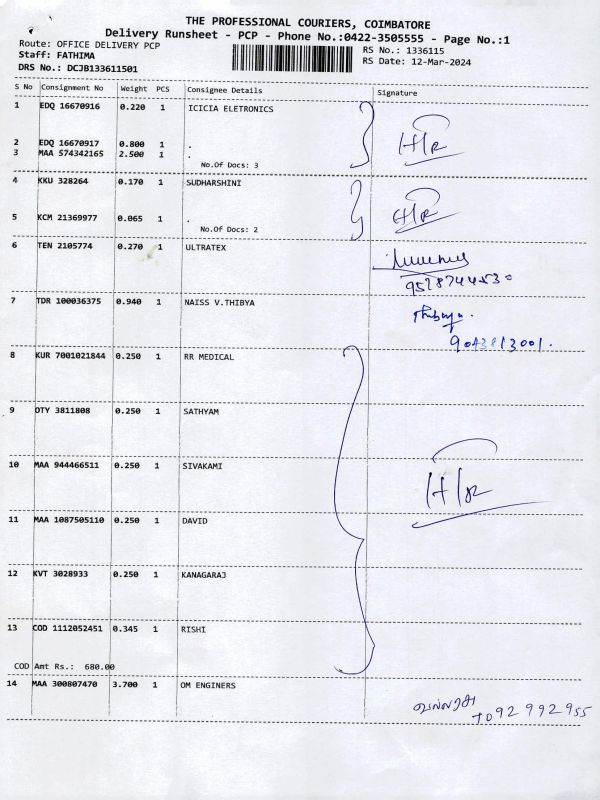 THE PROFESSIONAL COURIERS, COIMBATORE
Delivery Runsheet - PCP - Phone No.:0422-3505555 - Page No.:1
Route: OFFICE DELIVERY PCP
RS No.: 1336115
Staff: FATHIMA
RS Date: 12-Mar-2024
DRS No.: DCJB133611501
S No Consignment No Weight PCS Consignee Details Signature
1 EDQ 16670916 0.220 1 ICICIA ELETRONICS
2 EDQ 16670917 0.800 1 .
3 MAA 574342165 2.500 1 .
No.Of Docs: 3
H/R
4 KKU 328264 0.170 1 SUDHARSHINI
5 KCM 21369977 0.065 1 .
No.Of Docs: 2
H/R
6 TEN 2105774 0.270 1 ULTRATEX
7 TDR 100036375 0.940 1 NAISS V.THIBYA
Thibya.
8 KUR 7001021844 0.250 1 RR MEDICAL
9 OTY 3811808 0.250 1 SATHYAM
10 MAA 944466511 0.250 1 SIVAKAMI
H/R
11 MAA 1087505110 0.250 1 DAVID
12 KVT 3028933 0.250 1 KANAGARAJ
13 COD 1112052451 0.345 1 RISHI
COD Amt Rs.: 680.00
14 MAA 300807470 3.700 1 OM ENGINERS